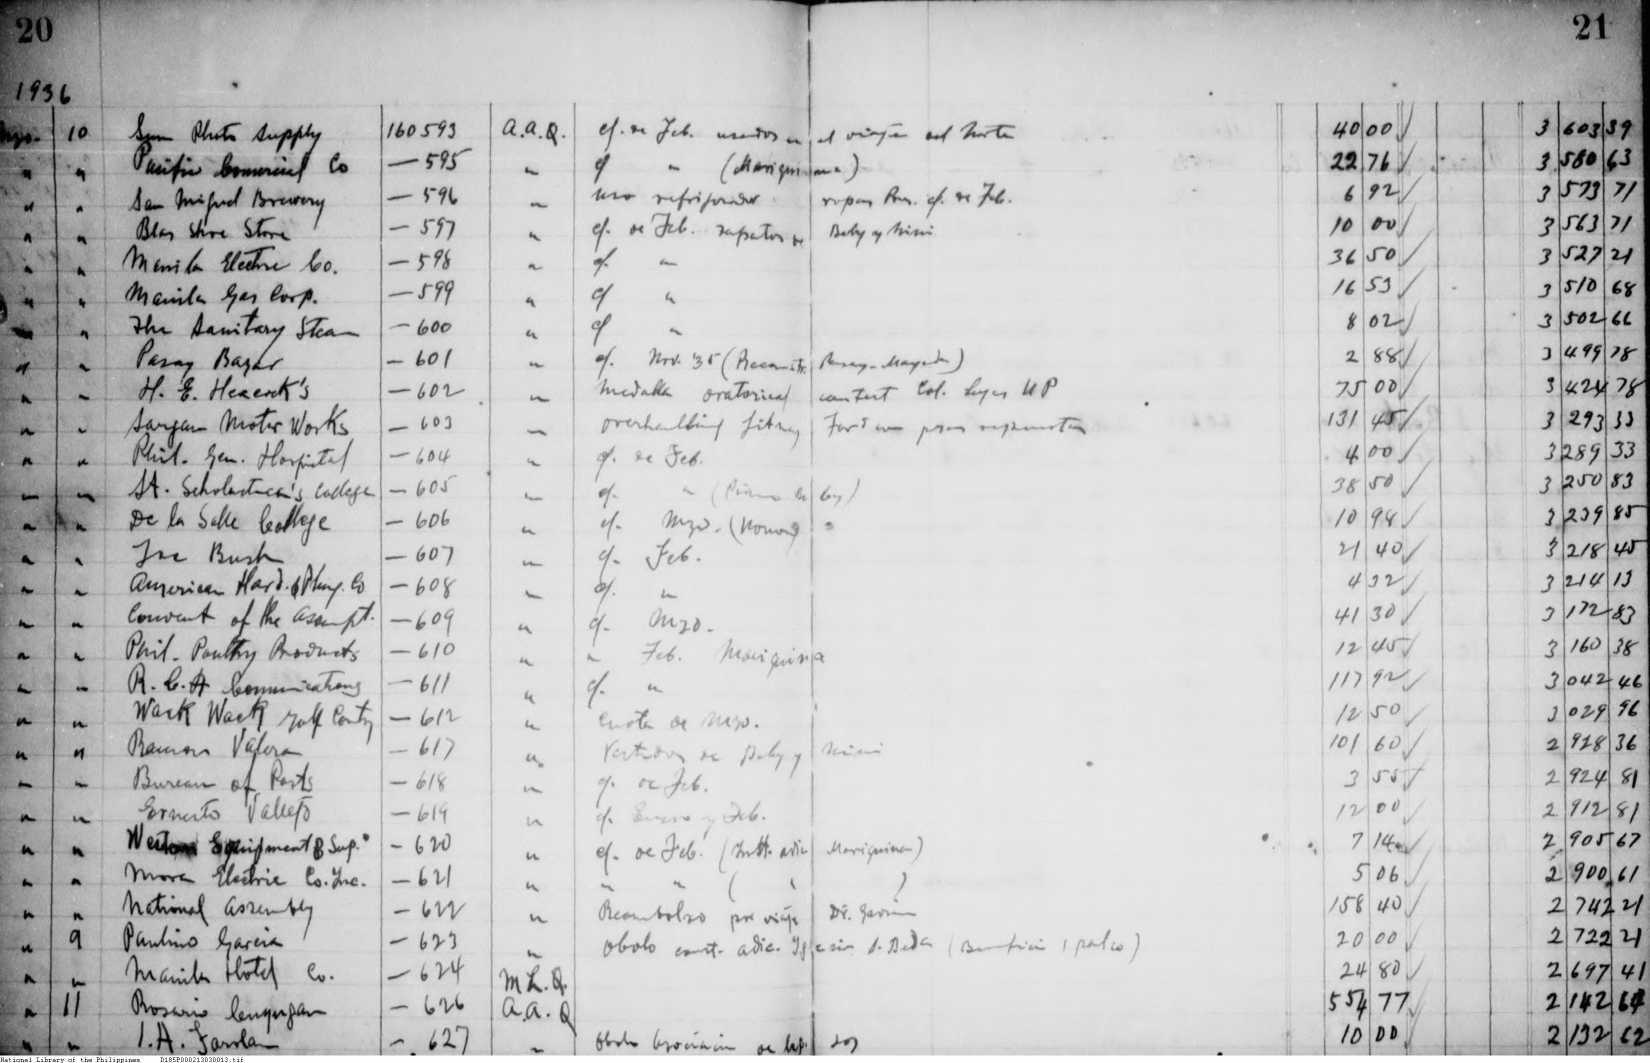 20 21
1936
Mzo. 10 Sun Photo Supply 160593 A.A.Q. cf. de Feb. usados en el viaje del Norte 40 00 3 603 39
" " Pacific Comercial Co — 595 " cf " (Mariquina) 22 76 3 580 63
" " San Miguel Brewery — 596 " uso refrigerador cf. de Feb. 6 92 3 573 71
" " Blas Shoe Store — 597 " cf. de Feb. zapatos de Baby y Nini 10 00 3 563 71
" " Manila Electric Co. — 598 " cf. " 36 50 3 527 21
" " Manila Gas Corp. — 599 " cf " 16 53 3 510 68
" " The Sanitary Steam — 600 " cf " 8 02 3 502 66
" " Pasay Bazar — 601 " cf. Nov. '35 ( Pasay- ) 2 88 3 499 78
" " H. E. Heacock's — 602 " Medalla oratorical contest Col. Leyes UP 75 00 3 424 78
" " Sargan Motor Works — 603 " overhaulling Ford 131 45 3 293 33
" " Phil. Gen. Hospital — 604 " cf. de Feb. 4 00 3 289 33
" " St. Scholastica's College — 605 " cf. " (Piano 38 50 3 250 83
" " De la Salle College — 606 " cf. Mzo. (Nonong) " 10 98 3 239 85
" " Bush — 607 " cf. Feb. 21 40 3 218 45
" " American Hard. & Plmg. Co — 608 " cf. " 4 32 3 214 13
" " Convent of the Assumpt. — 609 " cf. Mzo. 41 30 3 172 83
" " Phil. Poultry Products — 610 " " Feb. Mariquina 12 45 3 160 38
" " R. C. A Communications — 611 " cf. " 117 92 3 042 46
" " Wack Wack Golf Contry — 612 " Cuota de Mzo. 12 50 3 029 96
" " Ramon Valera — 617 " Vestidos de Baby y Nini 101 60 2 928 36
" " Bureau of Posts — 618 " cf. de Feb. 3 55 2 924 81
" " Ernesto Vallejo — 619 " cf. Enero y Feb. 12 00 2 912 81
" " Western Equipment & Sup. — 620 " cf. de Feb. ( adic Mariquina) 7 14 2 905 67
" " Mora Electric Co. Inc. — 621 " " " ( " ) 5 06 2 900 61
" " National Assembly — 622 " Reembolso por viaje Dr. 158 40 2 742 21
" 9 Paulino Garcia — 623 " obolo const. adic. Iglesia S. Beda (Beneficio 1 palco) 20 00 2 722 21
" " Manila Hotel Co. — 624 M.L.Q. 24 80 2 697 41
" 11 Rosario — 626 A.A.Q 554 77 2 142 64
" " — 627 " obolo 10 00 2 132 62
National Library of the Philippines D185P000213030013.tif